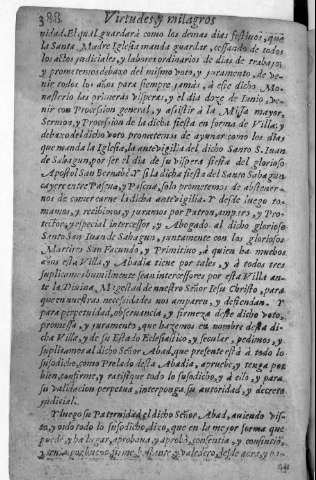 388 Virtudes, y milagros
vidad. El qual guardarà como los demas dias festiuos, que
la Santa Madre Iglesia manda guardar, cessando de todos
los actos judiciales, y labores ordinarios de dias de trabajo;
y prometemos debaxo del mismo voto, y juramento, de ve-
nir todos los años para siempre jamàs, à este dicho Mo-
nasterio las primeras visperas; y el dia doze de Iunio, ve-
nir con Procession general, y assistir à la Missa mayor,
Sermon, y Procession de la dicha fiesta en forma de Villa; y
debaxo del dicho voto prometemos de ayunar como los dias
que manda la Iglesia, la antevigilia del dicho Santo S. Iuan
de Sahagun, por ser el dia de su vispera fiesta del glorioso
Apostol San Bernabè. Y si la dicha fiesta del Santo Sahagun
cayere entre Pascua, y Pascua, solo prometemos de abstener-
nos de comer carne la dicha antevigilia. Y desde luego to-
mamos, y recibimos, y juramos por Patron, amparo, y Pro-
tector, y especial intercessor, y Abogado al dicho glorioso
Santo San Iuan de Sahagun, juntamente con los gloriosos
Martires San Facundo, y Primitiuo, à quien ha muchos
años esta Villa, y Abadia tiene por tales, y à todos tres
suplicamos humilmente sean intercessores por esta Villa an-
te la Diuina Magestad de nuestro Señor Iesu Christo, para
que en nuestras necessidades nos amparen, y defiendan. Y
para perpetuidad, obseruancia, y firmeza deste dicho voto,
promessa, y juramento, que hazemos en nombre desta di-
cha Villa, y de su Estado Eclesiastico, y secular, pedimos, y
suplicamos al dicho Señor Abad, que presente està à todo lo
susodicho, como Prelado desta Abadia, aprueue, y tenga por
bien, confirme, y ratifique todo lo susodicho, y à ello, y para
su validacion perpetua, interponga su autoridad, y decreto
judicial.
Y luego su Paternidad el dicho Señor Abad, auiendo vis-
to, y oìdo todo lo susodicho, dixo, que en la mejor forma que
puede, y ha lugar, aprobaua, y aprobò, consentia, y consintiò,